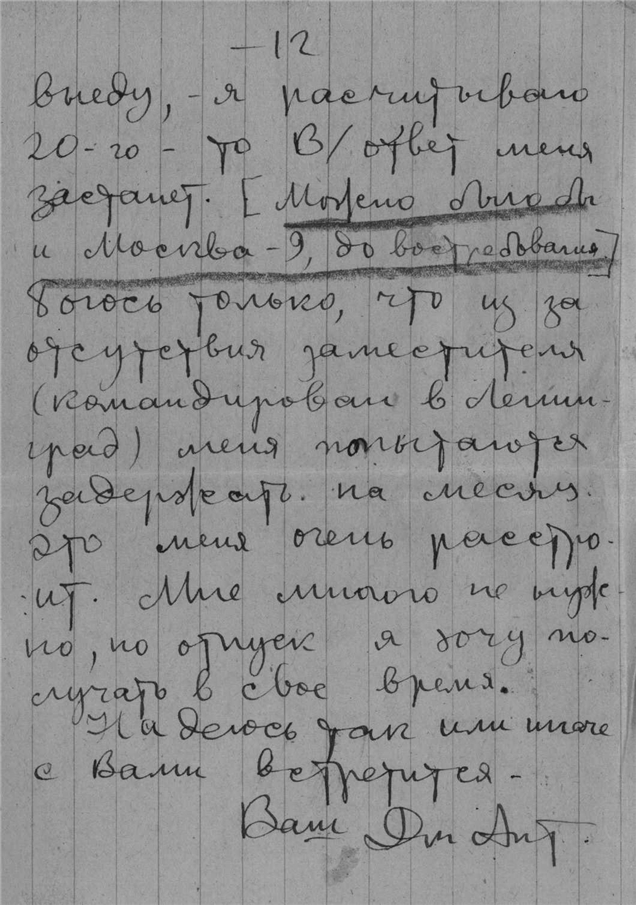 — 12
выеду, - я расчитываю
20-го - то В/ответ меня
застанет. [Можно было бы
и Москва-9, до востребования]
боюсь только, что из за
отсутствия заместителя
(командирован в Ленин-
град) меня попытаются
задержать на месяц.
это меня очень расстро-
ит. Мне многого не нуж-
но, но отпуск я хочу по-
лучать в свое время.
Надеюсь так или иначе
с Вами встретится -
Ваш Дм Ант.